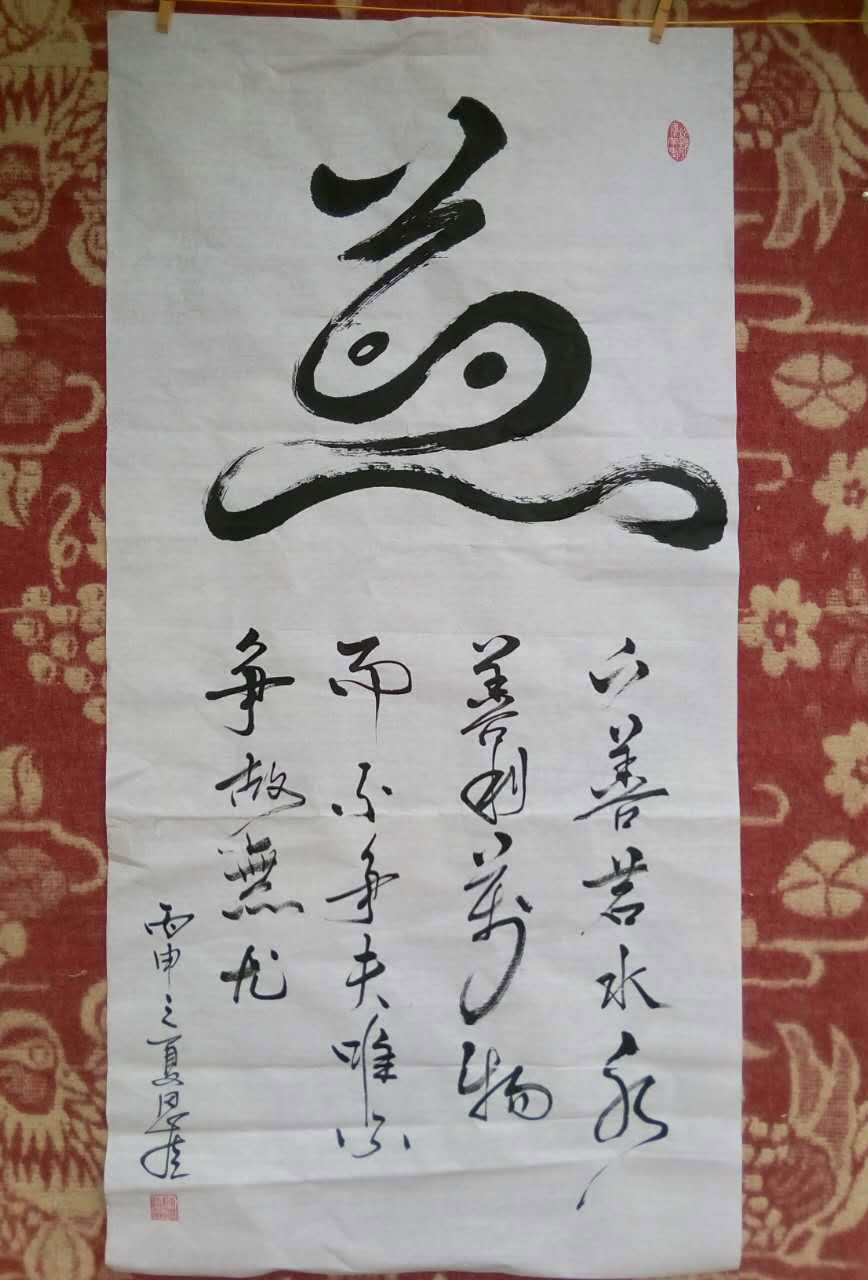 上善若水水
善利萬物
而不争夫唯不
争故無尤
丙申之夏